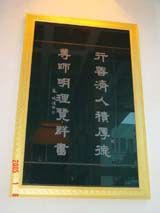 行善濟人積厚德
尊師明理覽群書